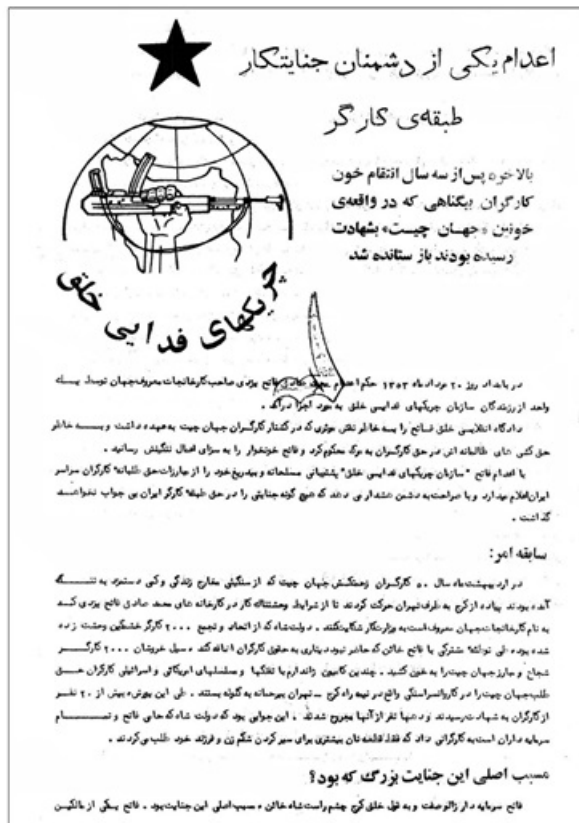 اعدام یکی از دشمنان جنایتکار
طبقه‌ی کارگر
بالاخره پس از سه سال انتقام خون
کارگران بیگناهی که در واقعه‌ی
خونین «جهان چیت» بشهادت
رسیده بودند باز ستانده شد
چریکهای فدایی خلق
در بامداد روز ۲۰ مرداد ماه ۱۳۵۳ حکم اعدام محمد صادق فاتح یزدی صاحب کارخانجات معروف جهان توسط یک
واحد از رزمندگان سازمان چریکهای فدایی خلق به مورد اجرا درآمد .
دادگاه انقلابی خلق فاتح را بسه خاطر نقش موثری که در کشتار کارگران جهان چیت به عهده داشت و بسه خاطر
حق کشی های ظالمانه اش در حق کارگران به مرگ محکوم کرد و فاتح خونخوار را به سزای اعمال ننگینش رسانید .
با اعدام فاتح "سازمان چریکهای فدایی خلق" پشتیبانی مسلحانه و بیدریغ خود را از مبارزات حق طلبانه کارگران سراسر
ایران اعلام میدارد و با صراحت به دشمن هشدار می دهد که هیچ گونه جنایتی را در حق طبقه کارگر ایران بی جواب نخواهد
گذاشت .
سابقه امر:
در اردیبهشت ماه سال ۵۰ کارگران زحمتکش جهان چیت که از سنگینی مخارج زندگی و کمی دستمزد به تنگ
آمده بودند پیاده از کرج به طرف تهران حرکت کردند تا از شرایط وحشتناک کار در کارخانه های محمد صادق فاتح یزدی که
به نام کارخانجات جهان معروف است به وزارت کار شکایت کنند . دولت شاه که از اتحاد و تجمع ۲۰۰۰ کارگر خشمگین وحشت زده
شده بود طی توطئه مشترکی با فاتح خائن که حاضر نبود دیناری به حقوق کارگران اضافه کند ، سیل خروشان ۲۰۰۰ کارگر
شجاع و مبارز جهان چیت را به خون کشید . چندین کامیون ژاندارم با تفنگها و مسلسلهای امریکائی و اسرائیلی کارگران حق
طلب جهان چیت را در کاروانسراسنگی واقع در نیمه راه کرج ـ تهران بیرحمانه به گلوله بستند . طی این یورش بیش از ۲۰ نفر
از کارگران به شهادت رسیدند و دهها نفر از آنها مجروح شدند . این جوابی بود که دولت شاه که حامی فاتح و تمام
سرمایه داران است به کارگرانی داد که فقط قطعه نان بیشتری برای سیر کردن شکم زن و فرزند خود طلب می کردند .
مسبب اصلی این جنایت بزرگ که بود؟
فاتح سرمایه دار زالو صفت و به قول خلق کرج چشم راست شاه خائن ، مسبب اصلی این جنایت بود . فاتح یکی از مالکین